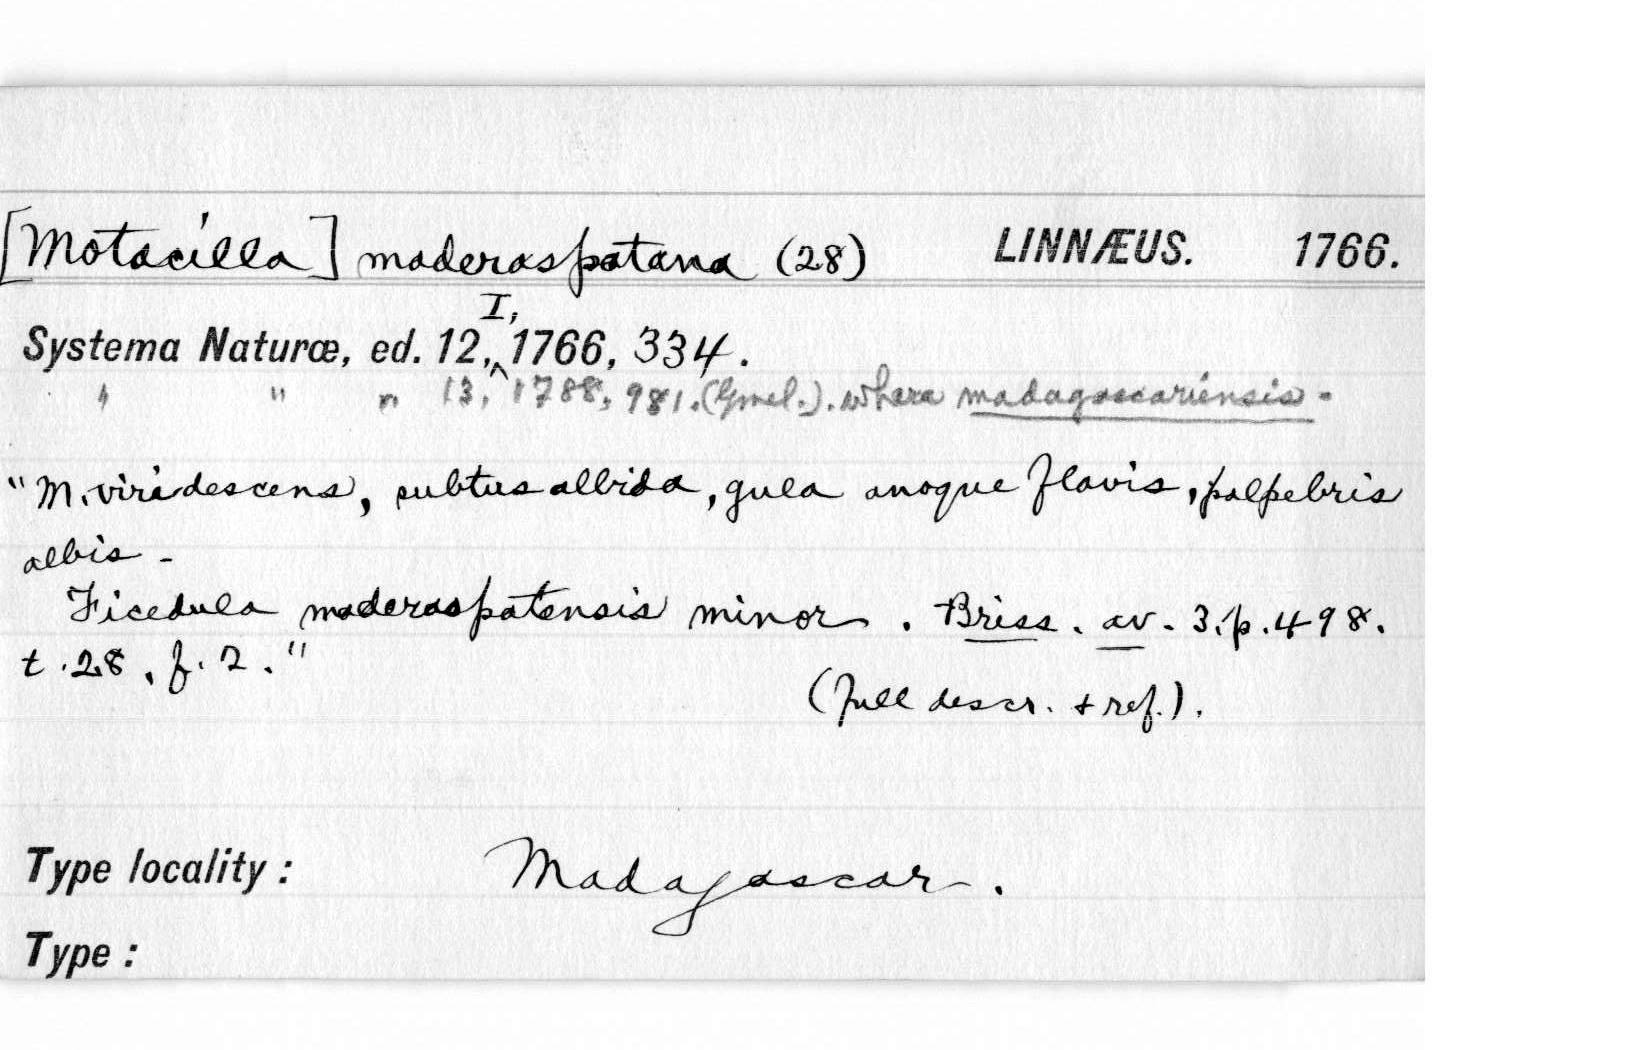 [Motacilla] maderaspatana (28) LINNÆUS. 1766.
I,
Systema Naturæ, ed. 12,^ 1766, 334.
" " " 13, 1788, 981. (Gmel.). where madagascariensis -
"M. viridescens, subtus albida, gula anoque flavis, palpebris
albis -
Ficedula maderaspatensis minor. Briss. av. 3. p. 498.
t. 28, f. 2."
(full descr. + ref.).
Type locality: Madagascar.
Type: